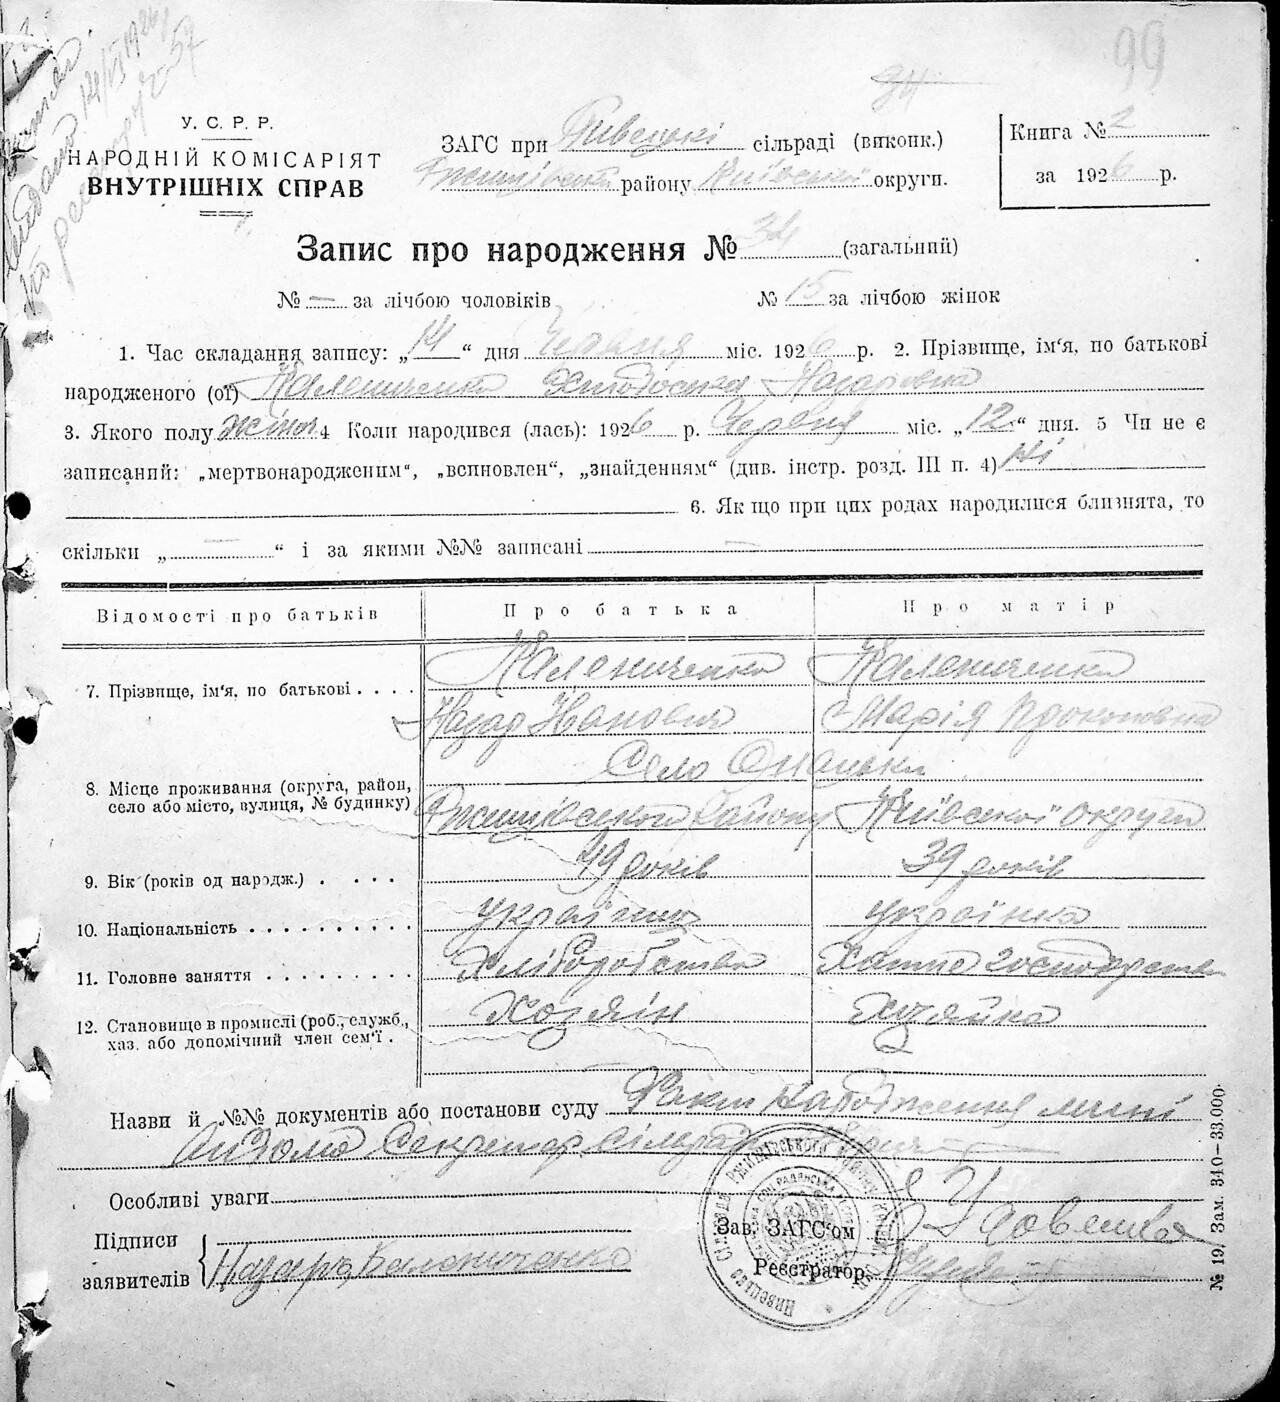 99
У. С. Р. Р.
НАРОДНІЙ КОМІСАРІЯТ
ВНУТРІШНІХ СПРАВ
ЗАГС при Пивецькі сільраді (виконк.)
району Київської округи.
Книга № 2
за 1926 р.
Запис про народження № 34 (загальний)
№ — за лічбою чоловіків
№ 15 за лічбою жінок
1. Час складання запису: „14“ дня Червня міс. 1926 р. 2. Прізвище, ім‘я, по батькові
народженого (ої) Калениченко Хтодоська Назаровна
3. Якого полу жіноч 4 Коли народився (лась): 1926 р. Червня міс. „12“ дня. 5 Чи не є
записаний: „мертвонародженим“, „всиновлен“, „знайденням“ (див. інстр. розд. III п. 4) Ні
6. Як що при цих родах народилися близнята, то
скільки „ — “ і за якими №№ записані —
Відомості про батьків
Про батька
Про матір
7. Прізвище, ім‘я, по батькові . . . .
Калениченко
Калениченко
Назар Іванович
Марія Прокоповна
8. Місце проживання (округа, район,
село або місто, вулиця, № будинку)
Село Онацьки
Ржищівського району Київської округи
9. Вік (років од народж.) . . . .
49 років
39 років
10. Національність . . . . . . . . . .
українец
українка
11. Головне заняття . . . . . . . . .
Хліборобство
Хатне господарство
12. Становище в промислі (роб., служб.,
хаз. або допомічний член сем‘ї .
Хозяїн
Хозяйка
Назви й №№ документів або постанови суду Факт народження мені
відомо Секретар сільради
Особливі уваги
Підписи
заявителів
Назаръ Калениченко
Зав. ЗАГС‘ом
Реєстратор
№ 19. Зам. 340—33.000.